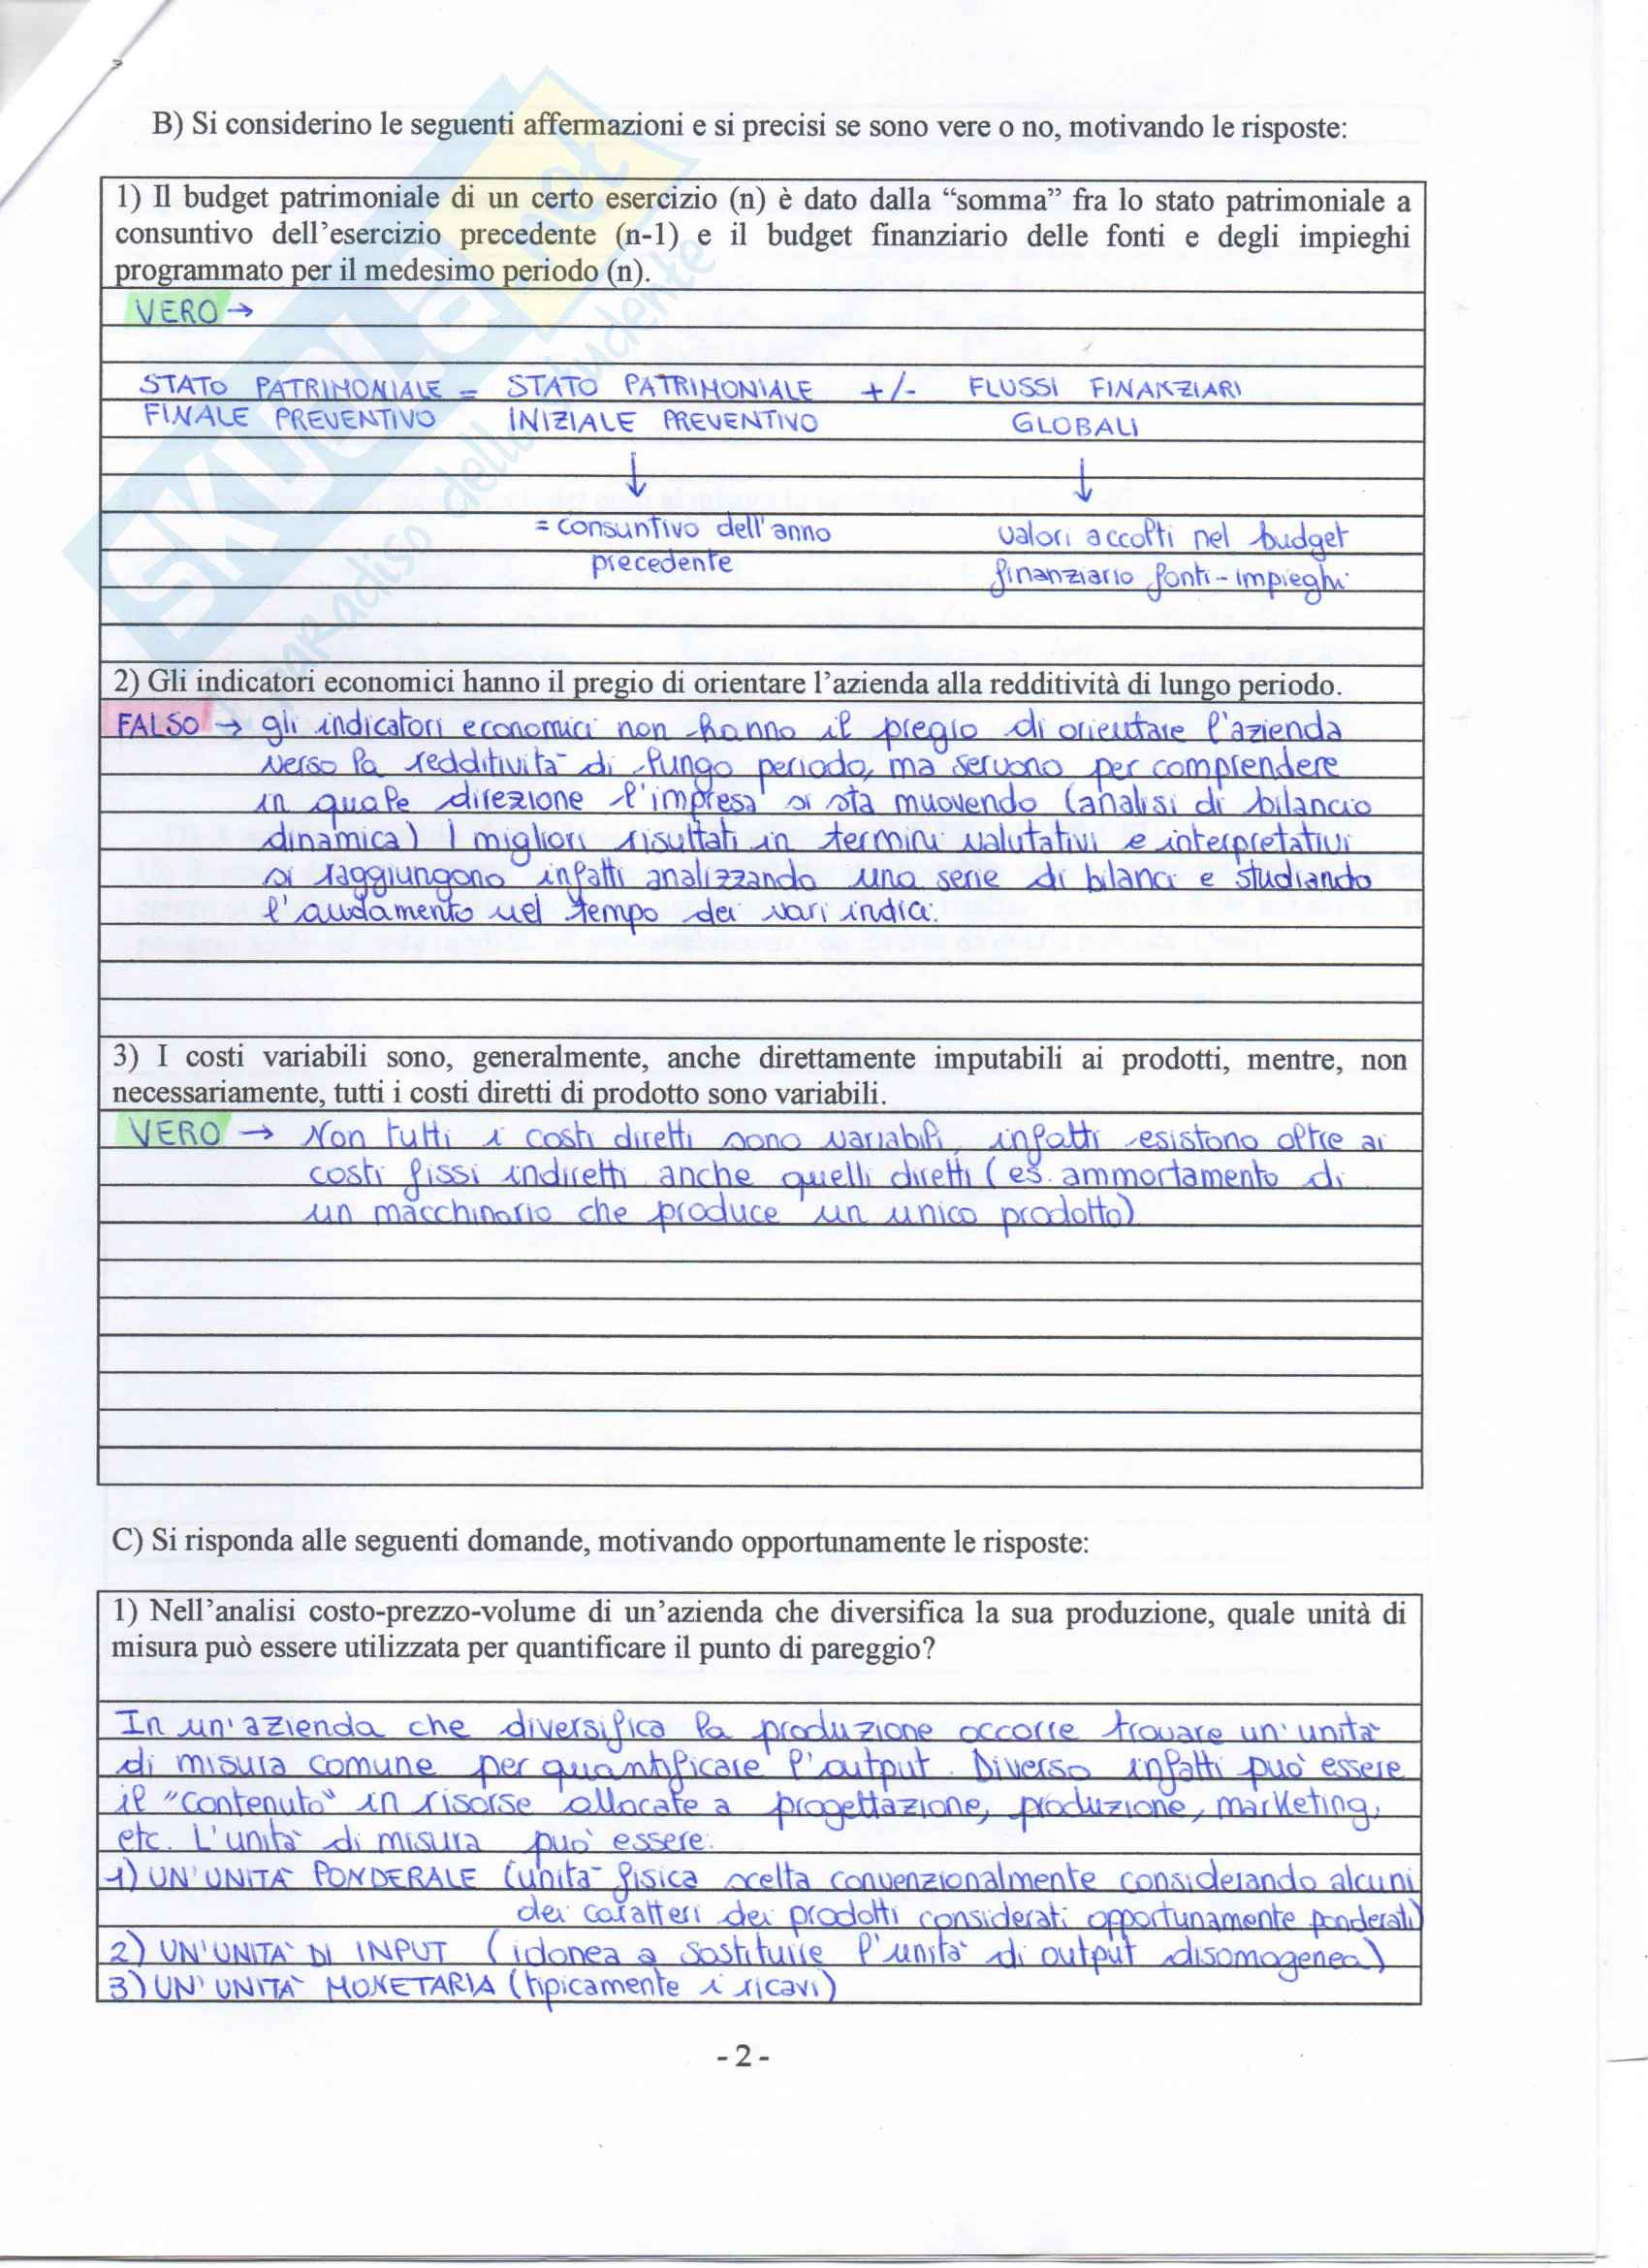 B) Si considerino le seguenti affermazioni e si precisi se sono vere o no, motivando le risposte:
1) Il budget patrimoniale di un certo esercizio (n) è dato dalla “somma” fra lo stato patrimoniale a
consuntivo dell’esercizio precedente (n-1) e il budget finanziario delle fonti e degli impieghi
programmato per il medesimo periodo (n).
VERO →
STATO PATRIMONIALE = STATO PATRIMONIALE +/- FLUSSI FINANZIARI
FINALE PREVENTIVO INIZIALE PREVENTIVO GLOBALI
↓ ↓
= consuntivo dell'anno valori accolti nel budget
precedente finanziario fonti-impieghi
2) Gli indicatori economici hanno il pregio di orientare l’azienda alla redditività di lungo periodo.
FALSO → gli indicatori economici non hanno il pregio di orientare l'azienda
verso la redditività di lungo periodo, ma servono per comprendere
in quale direzione l'impresa si sta muovendo (analisi di bilancio
dinamica) I migliori risultati in termini valutativi e interpretativi
si raggiungono infatti analizzando una serie di bilanci e studiando
l'andamento nel tempo dei vari indici.
3) I costi variabili sono, generalmente, anche direttamente imputabili ai prodotti, mentre, non
necessariamente, tutti i costi diretti di prodotto sono variabili.
VERO → Non tutti i costi diretti sono variabili, infatti esistono oltre ai
costi fissi indiretti anche quelli diretti (es. ammortamento di
un macchinario che produce un unico prodotto)
C) Si risponda alle seguenti domande, motivando opportunamente le risposte:
1) Nell’analisi costo-prezzo-volume di un’azienda che diversifica la sua produzione, quale unità di
misura può essere utilizzata per quantificare il punto di pareggio?
In un'azienda che diversifica la produzione occorre trovare un'unità
di misura comune per quantificare l'output. Diverso infatti può essere
il "contenuto" in risorse allocate a progettazione, produzione, marketing,
etc. L'unità di misura può essere:
1) UN'UNITÀ PONDERALE (unità fisica scelta convenzionalmente considerando alcuni
dei caratteri dei prodotti considerati opportunamente ponderati)
2) UN'UNITÀ DI INPUT (idonea a sostituire l'unità di output disomogenea)
3) UN'UNITÀ MONETARIA (tipicamente i ricavi)
- 2 -
SKUOLA.net
il paradiso dello studente